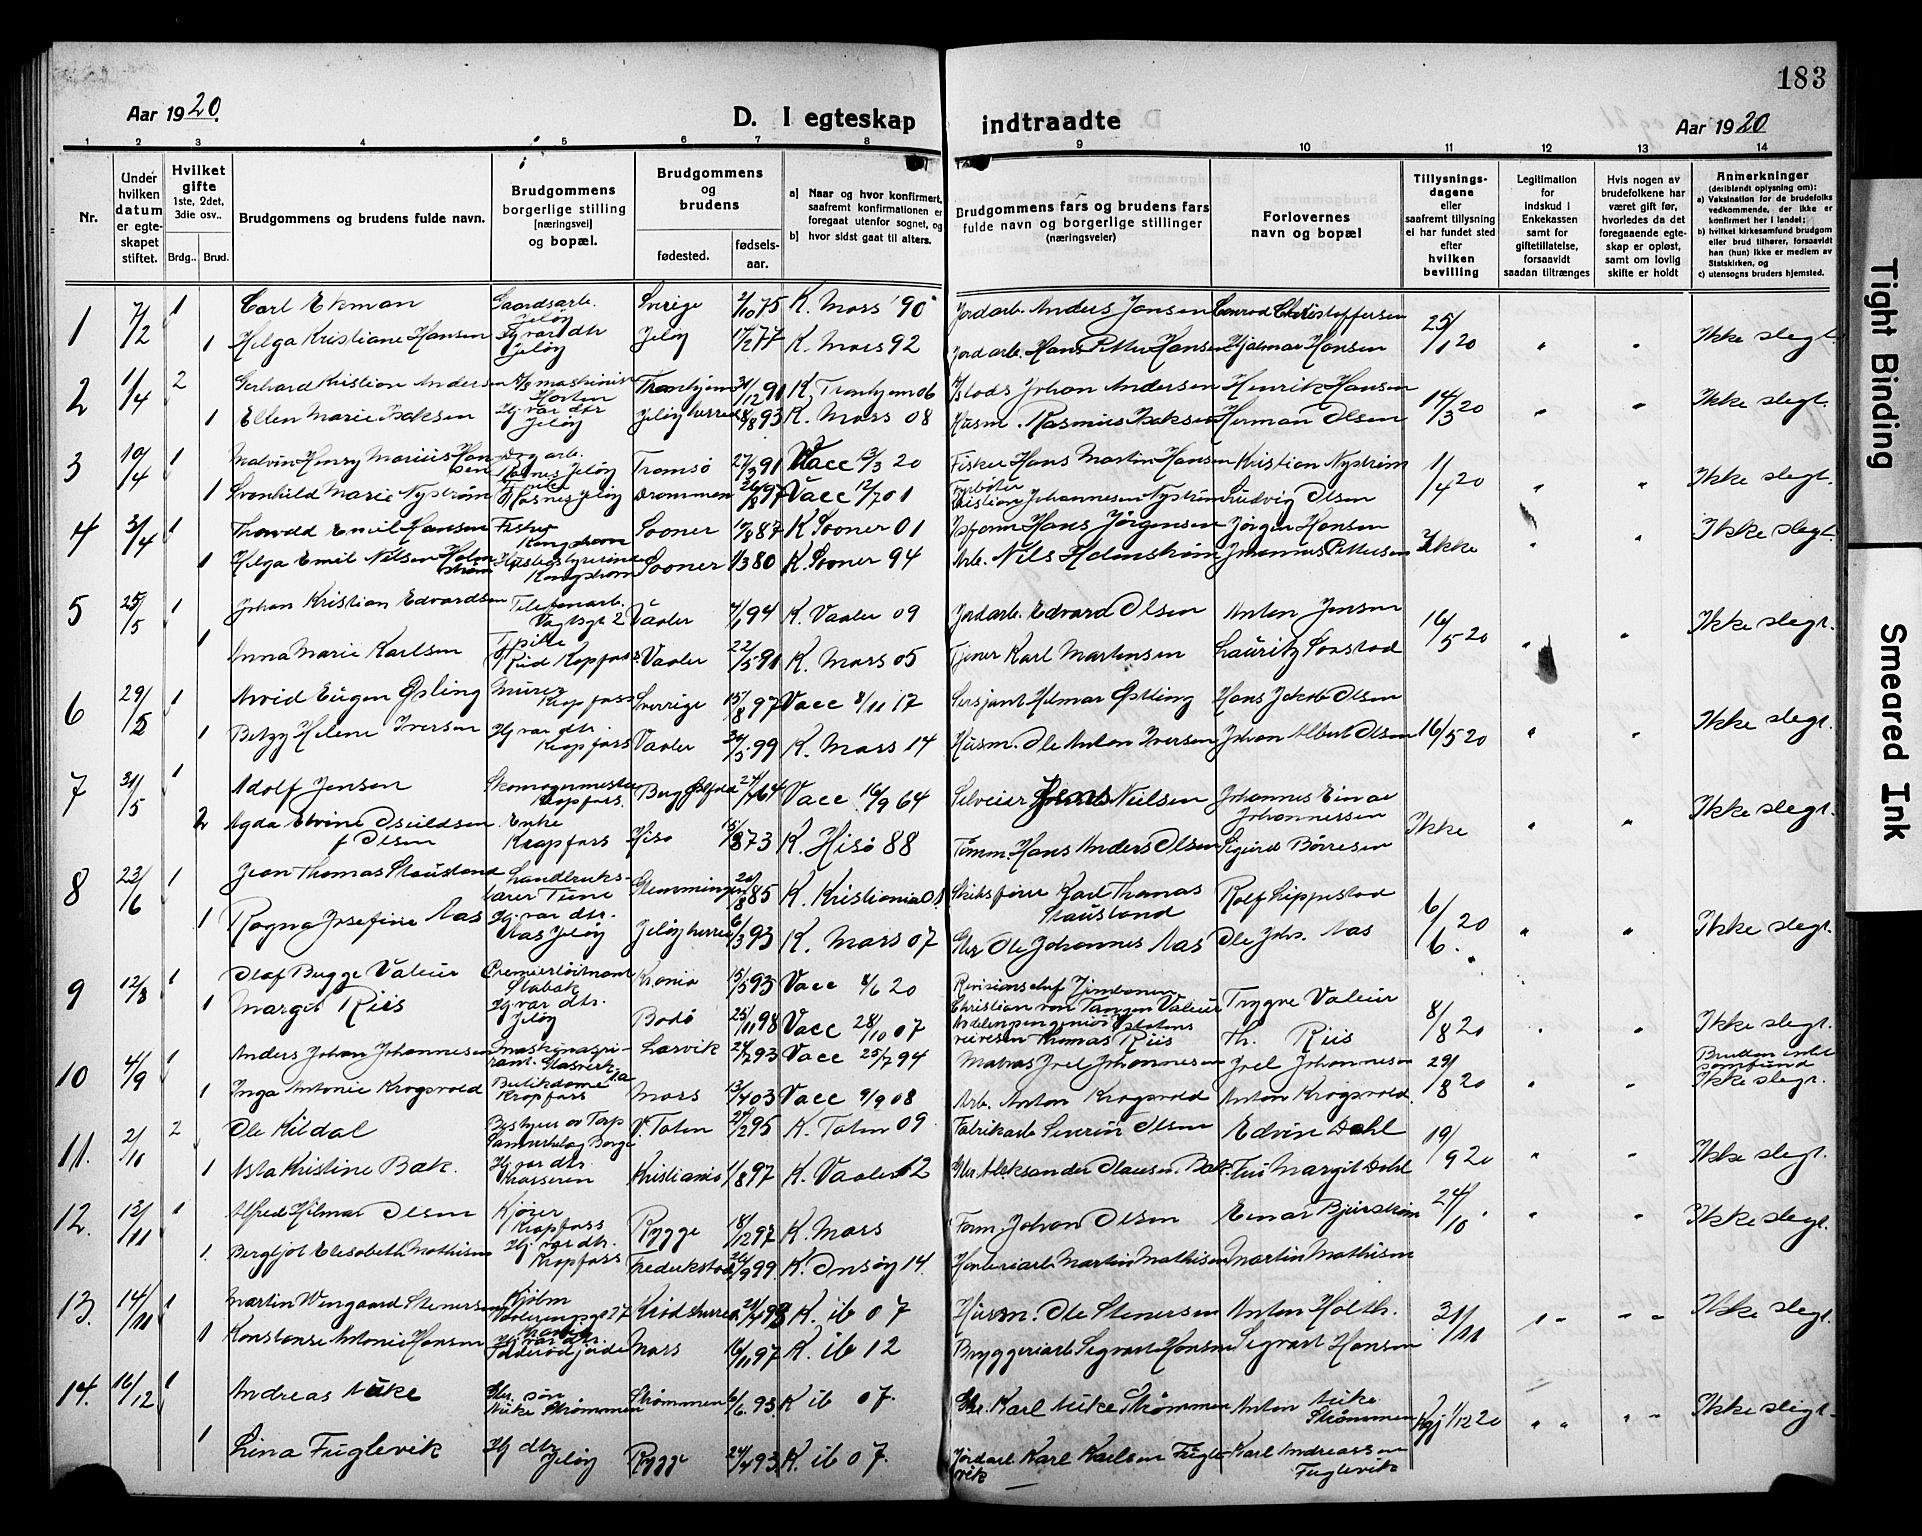 183
Aar 1920.
D. I egteskap indtraadte
Aar 1920
1 2 3 4 5 6 7 8 9 10 11 12 13 14
Nr.
Under hvilken datum er egteskapet stiftet.
Hvilket gifte 1ste, 2det, 3die osv..
Brdg..
Brud.
Brudgommens og brudens fulde navn.
Brudgommens borgerlige stilling (næringsvei) og bopæl.
Brudgommens og brudens
fødested.
fødsels-aar.
a) Naar og hvor konfirmert, saafremt konfirmationen er foregaat utenfor sognet, og
b) hvor sidst gaat til alters.
Brudgommens fars og brudens fars fulde navn og borgerlige stillinger (næringsveier)
Forlovernes navn og bopæl
Tillysnings-dagene eller saafremt tillysning ei har fundet sted efter hvilken bevilling
Legitimation for indskud i Enkekassen samt for giftetillatelse, forsaavidt saadan tiltrænges
Hvis nogen av brudefolkene har været gift før, hvorledes da det foregaaende egteskap er opløst, samt om lovlig skifte er holdt
Anmerkninger (deriblandt oplysning om):
a) Vaksination for de brudefolks vedkommende, der ikke er konfirmert her i landet;
b) hvilket kirkesamfund brudgom eller brud tilhører, forsaavidt han (hun) ikke er medlem av Statskirken, og
c) utensogns bruders hjemsted.
1 7/2 1 Carl Ekman Gaardsarb. Jeløy Sverige 2/10 75 K. Moss 90 Jordarb. Anders Jansen Conrad Christoffersen 25/1 20 Ikke slegt.
1 Helga Kristiane Hansen Hj. var. dtr. Jeløy Jeløy 17/2 77 K. Moss 92 Jordarb. Hans Petter Hansen Hjalmar Hansen
2 1/4 2 Gerhard Kristian Andersen maskinist Horten Tronhjem 31/12 91 K. Tronhjem 06 Johan Andersen Henrik Hansen 14/3 20 Ikke slegt.
1 Ellen Marie Isaksen Hj. var. dtr. Jeløy Jeløy herred 8/8 93 K. Moss 08 Husm. Rasmus Isaksen Herman Olsen
3 10/4 1 Malvin Henry Marius Hansen Dagarb. Jeløy Tromsø 27/3 91 Vacc 13/3 20 Fisker Hans Martin Hansen Kristian Nystrøm 1/4 20 Ikke slegt.
1 Svanhild Marie Nystrøm Jeløy Drammen 97 Vacc 12/7 01 Kristian Johannesen Nystrøm Ludvig Olsen
4 3/4 1 Thorvald Emil Hansen Fisker Kongshavn Sooner 10/8 87 K. Sooner 01 Hans Jørgensen Jørgen Hansen Ikke Ikke slegt.
1 Helga Emil Nilsen Holmstrøm Husbestyrerinde Kongshavn Sooner 1/3 80 K. Sooner 94 Arb. Nils Holmstrøm Johannes Pettersen
5 25/5 1 Johan Kristian Edvardsen Telefonarb. Vogtsgt 2 Vaaler 94 K. Vaaler 09 Jordarb. Edvard Olsen Anton Jensen 16/5 20 Ikke slegt.
1 Anna Marie Karlsen Kapfoss Vaaler 22/5 91 K. Moss 05 Tjener Karl Martinsen Lauritz Sonstad
6 29/5 1 Arvid Eugen Østling Murer Kapfoss Sverrige 15/8 97 Vacc 8/11 17 Sersjant Hilmar Østling Hans Jakob Olsen 16/5 20 Ikke slegt.
1 Betzy Helene Iversen Hj. var. dtr. Kapfoss Vaaler 30/5 99 K. Moss 14 Husm. Ole Anton Iversen Johan Albert Olsen
7 31/5 1 Adolf Jensen Skomagermester Kapfoss. Berg 24/7 64 Vacc 16/9 64 Selveier Nielsen Johannes Einar Johannessen Ikke Ikke slegt.
2 Agda Elvine f Olsen Enke Kapfoss Hisø 15/8 73 K. Hisø 88 Tømm. Hans Anders Olsen Sigurd Børresen
8 23/6 1 Jean Thomas Stausland Landbrukslærer Tune Glemmingen 20/8 85 K. Kristiania Karl Thomas Stausland Rolf Lippestad 6/6. 20 Ikke slegt.
1 Ragna Josefine Aas Hj. var. dtr. Aas Jeløy Jeløy herred 6/3 93 K. Moss 07 Gbr Ole Johannes Aas Ole Joh. Aas
9 12/8 1 Olaf Bugge Valeur Premierløitnant Stabæk 15/5 93 Vacc 8/6 20 Revisionschef Christian von Tangen Valeur Trygve Valeur 8/8 20 Ikke slegt.
1 Margit Riis Hj. var. dtr. Jeløy Bodø 25/11 98 Vacc 28/10 07 Thomas Riis Th. Riis
10 4/9 1 Anders Johan Johannesen Larvik 24/7 93 Vacc 25/7 94 Matros Joel Johannesen Joel Johannesen 29/8 20
1 Inga Antonie Krogsvold Butikdame Kapfoss Moss 13/4 03 Vacc 9/9 08 Arb. Anton Krogsvold Anton Krogsvold. Ikke slegt.
11. 2/10 2 Ole Kildal Bestyrer av Torp Borge V. Toten 29/2 95 K. Toten 09 Fabrikarb Severin Olsen Edvin Dahl 19/9 20 Ikke slegt.
1 Asta Kristine Bak. Hj. var dtr. Kristiania 1/8 97 K. Vaaler 12 Gbr. Aleksander Olausen Bak. Fru Margit Dahl
12. 13/11 1 Alfred Hilmar Olsen Kjører Kapfoss Rygge 18/12 97 K. Moss Form. Johan Olsen Einar Bjurstrøm 24/10 Ikke slegt.
1. Bergljot Elisabeth Mathisen Hj. var dtr. Kapfoss Frederikstad 99 K. Onsøy 14. Martin Mathisen Martin Mathisen
13. 14/11 1 Martin Wengaard Stenersen Kjøbm Kråkstad herred. K. ib 07 Husm. Ole Stenersen Anton Holth. 31/11 Ikke slegt.
1 Konstanse Antonie Hansen Hj. var. dtr. Tollerødjordet Moss 16/11 97 K. ib 12 Bryggeriarb Segvart Hansen Segvart Hansen
14. 16/12 1 Andreas Auke Gbr. søn Auke Strømmen Strømmen 6/6. 93. K ib 07. Gbr. Karl Auke Strømmen Anton Auke Strømmen Kgj 1/12 20 Ikke slegt.
1 Lina Fuglevik Hj dtr Jeløy Rygge 24/4 93. K. ib 07. Jordarb Karl Karlsen Fuglevik Karl Andreassen Fuglevik
Tight Binding
Smeared Ink